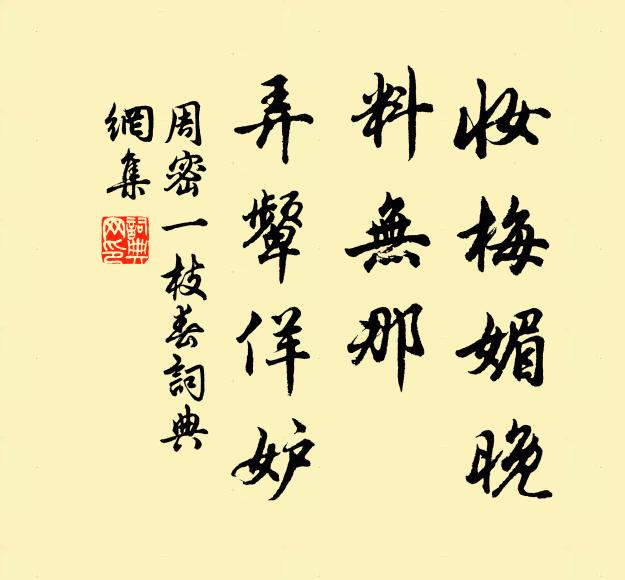 妆梅媚晚
料無那
弄顰佯妒
周密一枝春詞典
網集
詞典
网印